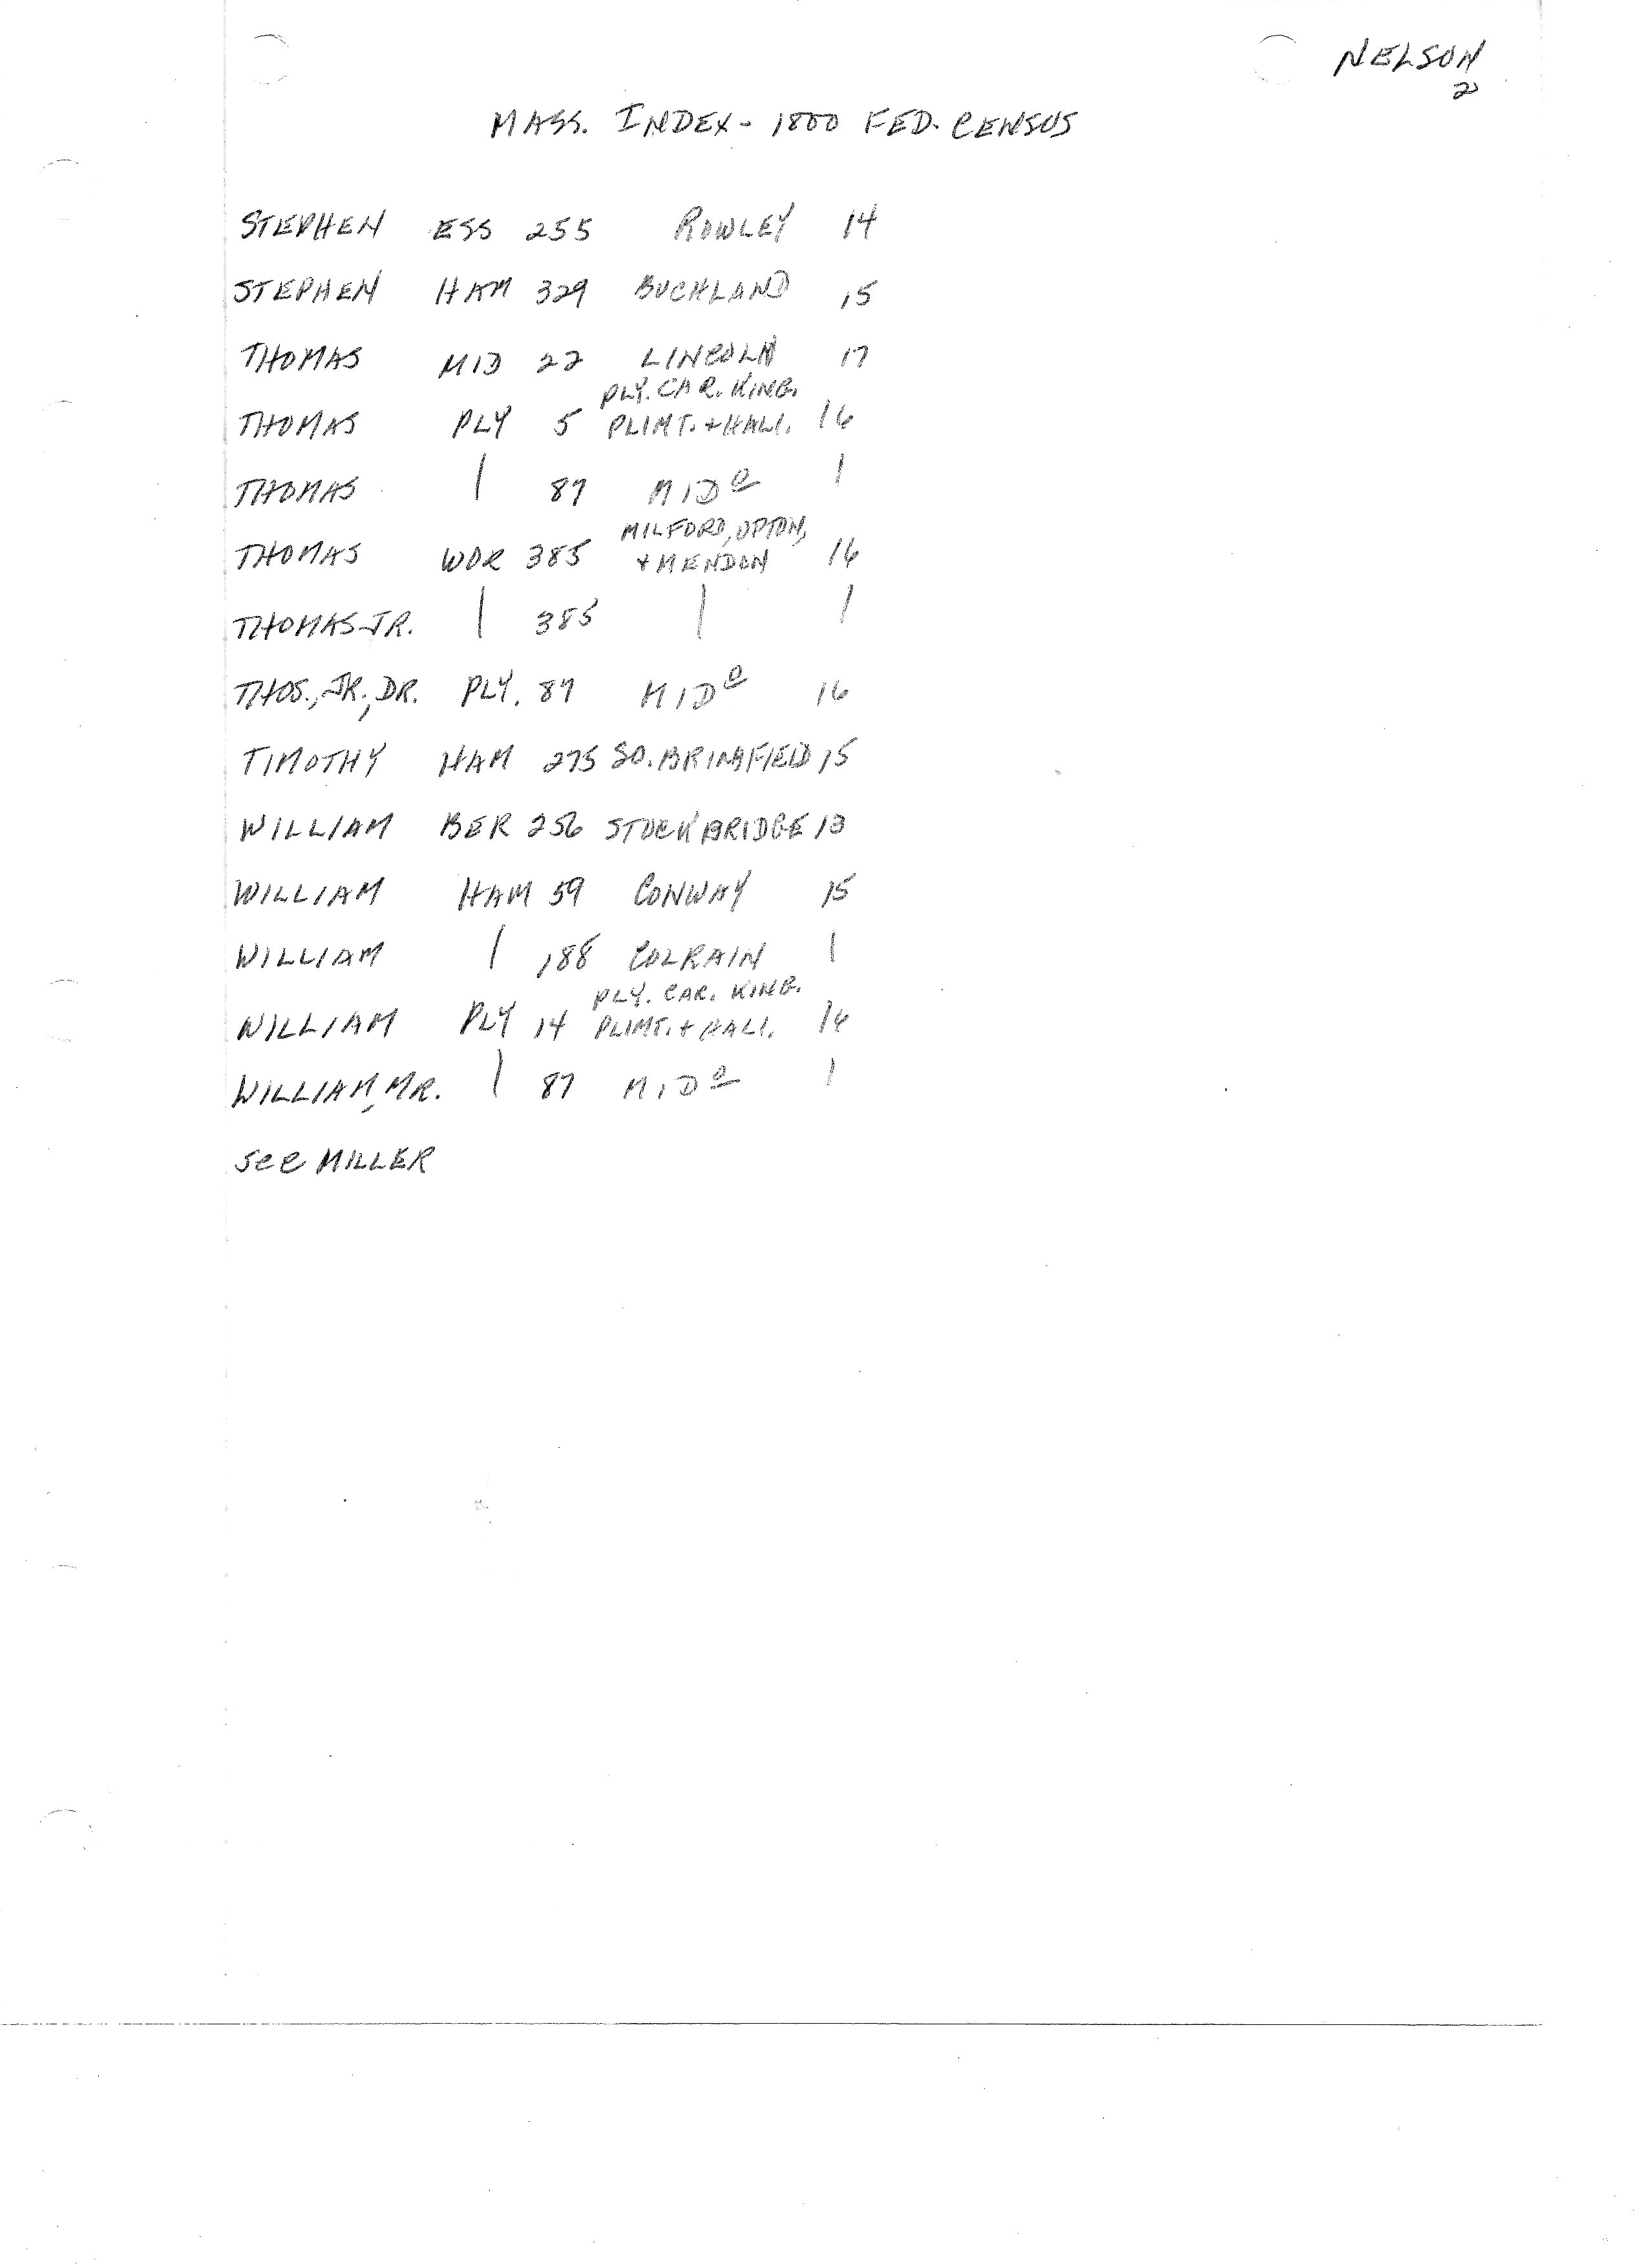 NELSON
2
MASS. INDEX - 1800 FED. CENSUS
STEPHEN ESS 255 ROWLEY 14
STEPHEN HAM 329 BUCKLAND 15
THOMAS MID 22 LINCOLN 17
PLY. CAR. KING.
THOMAS PLY 5 PLIMT. + HALI. 16
THOMAS | 87 MID O |
MILFORD, UPTON,
THOMAS WOR 385 + MENDON 16
THOMAS JR. | 385 | |
THOS., JR., DR. PLY. 87 MID O 16
TIMOTHY HAM 275 SO. BRIMFIELD 15
WILLIAM BER 256 STOCKBRIDGE 13
WILLIAM HAM 59 CONWAY 15
WILLIAM | 188 COLRAIN |
PLY. CAR. KING.
WILLIAM PLY 14 PLIMT. + HALI. 16
WILLIAM, MR. | 87 MID O |
see MILLER